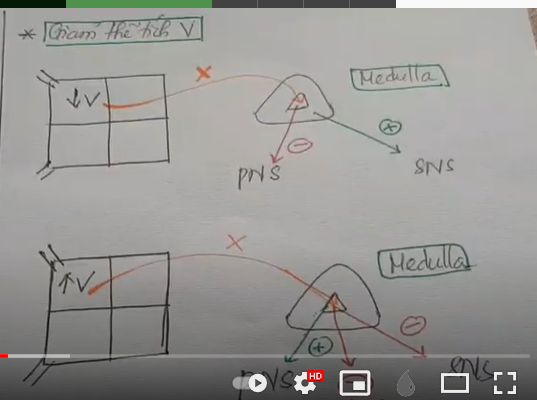 * Giảm thể tích V
↓V
x
Medulla
⊕
⊖
PNS
SNS
x
Medulla
↑V
⊖
⊕
PNS
SNS
HD